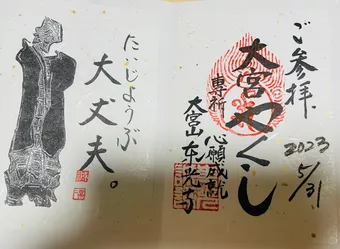 ご参拝
2023
5/31
大宮やくし
専祈 心願成就
大宮山 东光寺
だいじょうぶ
大丈夫。